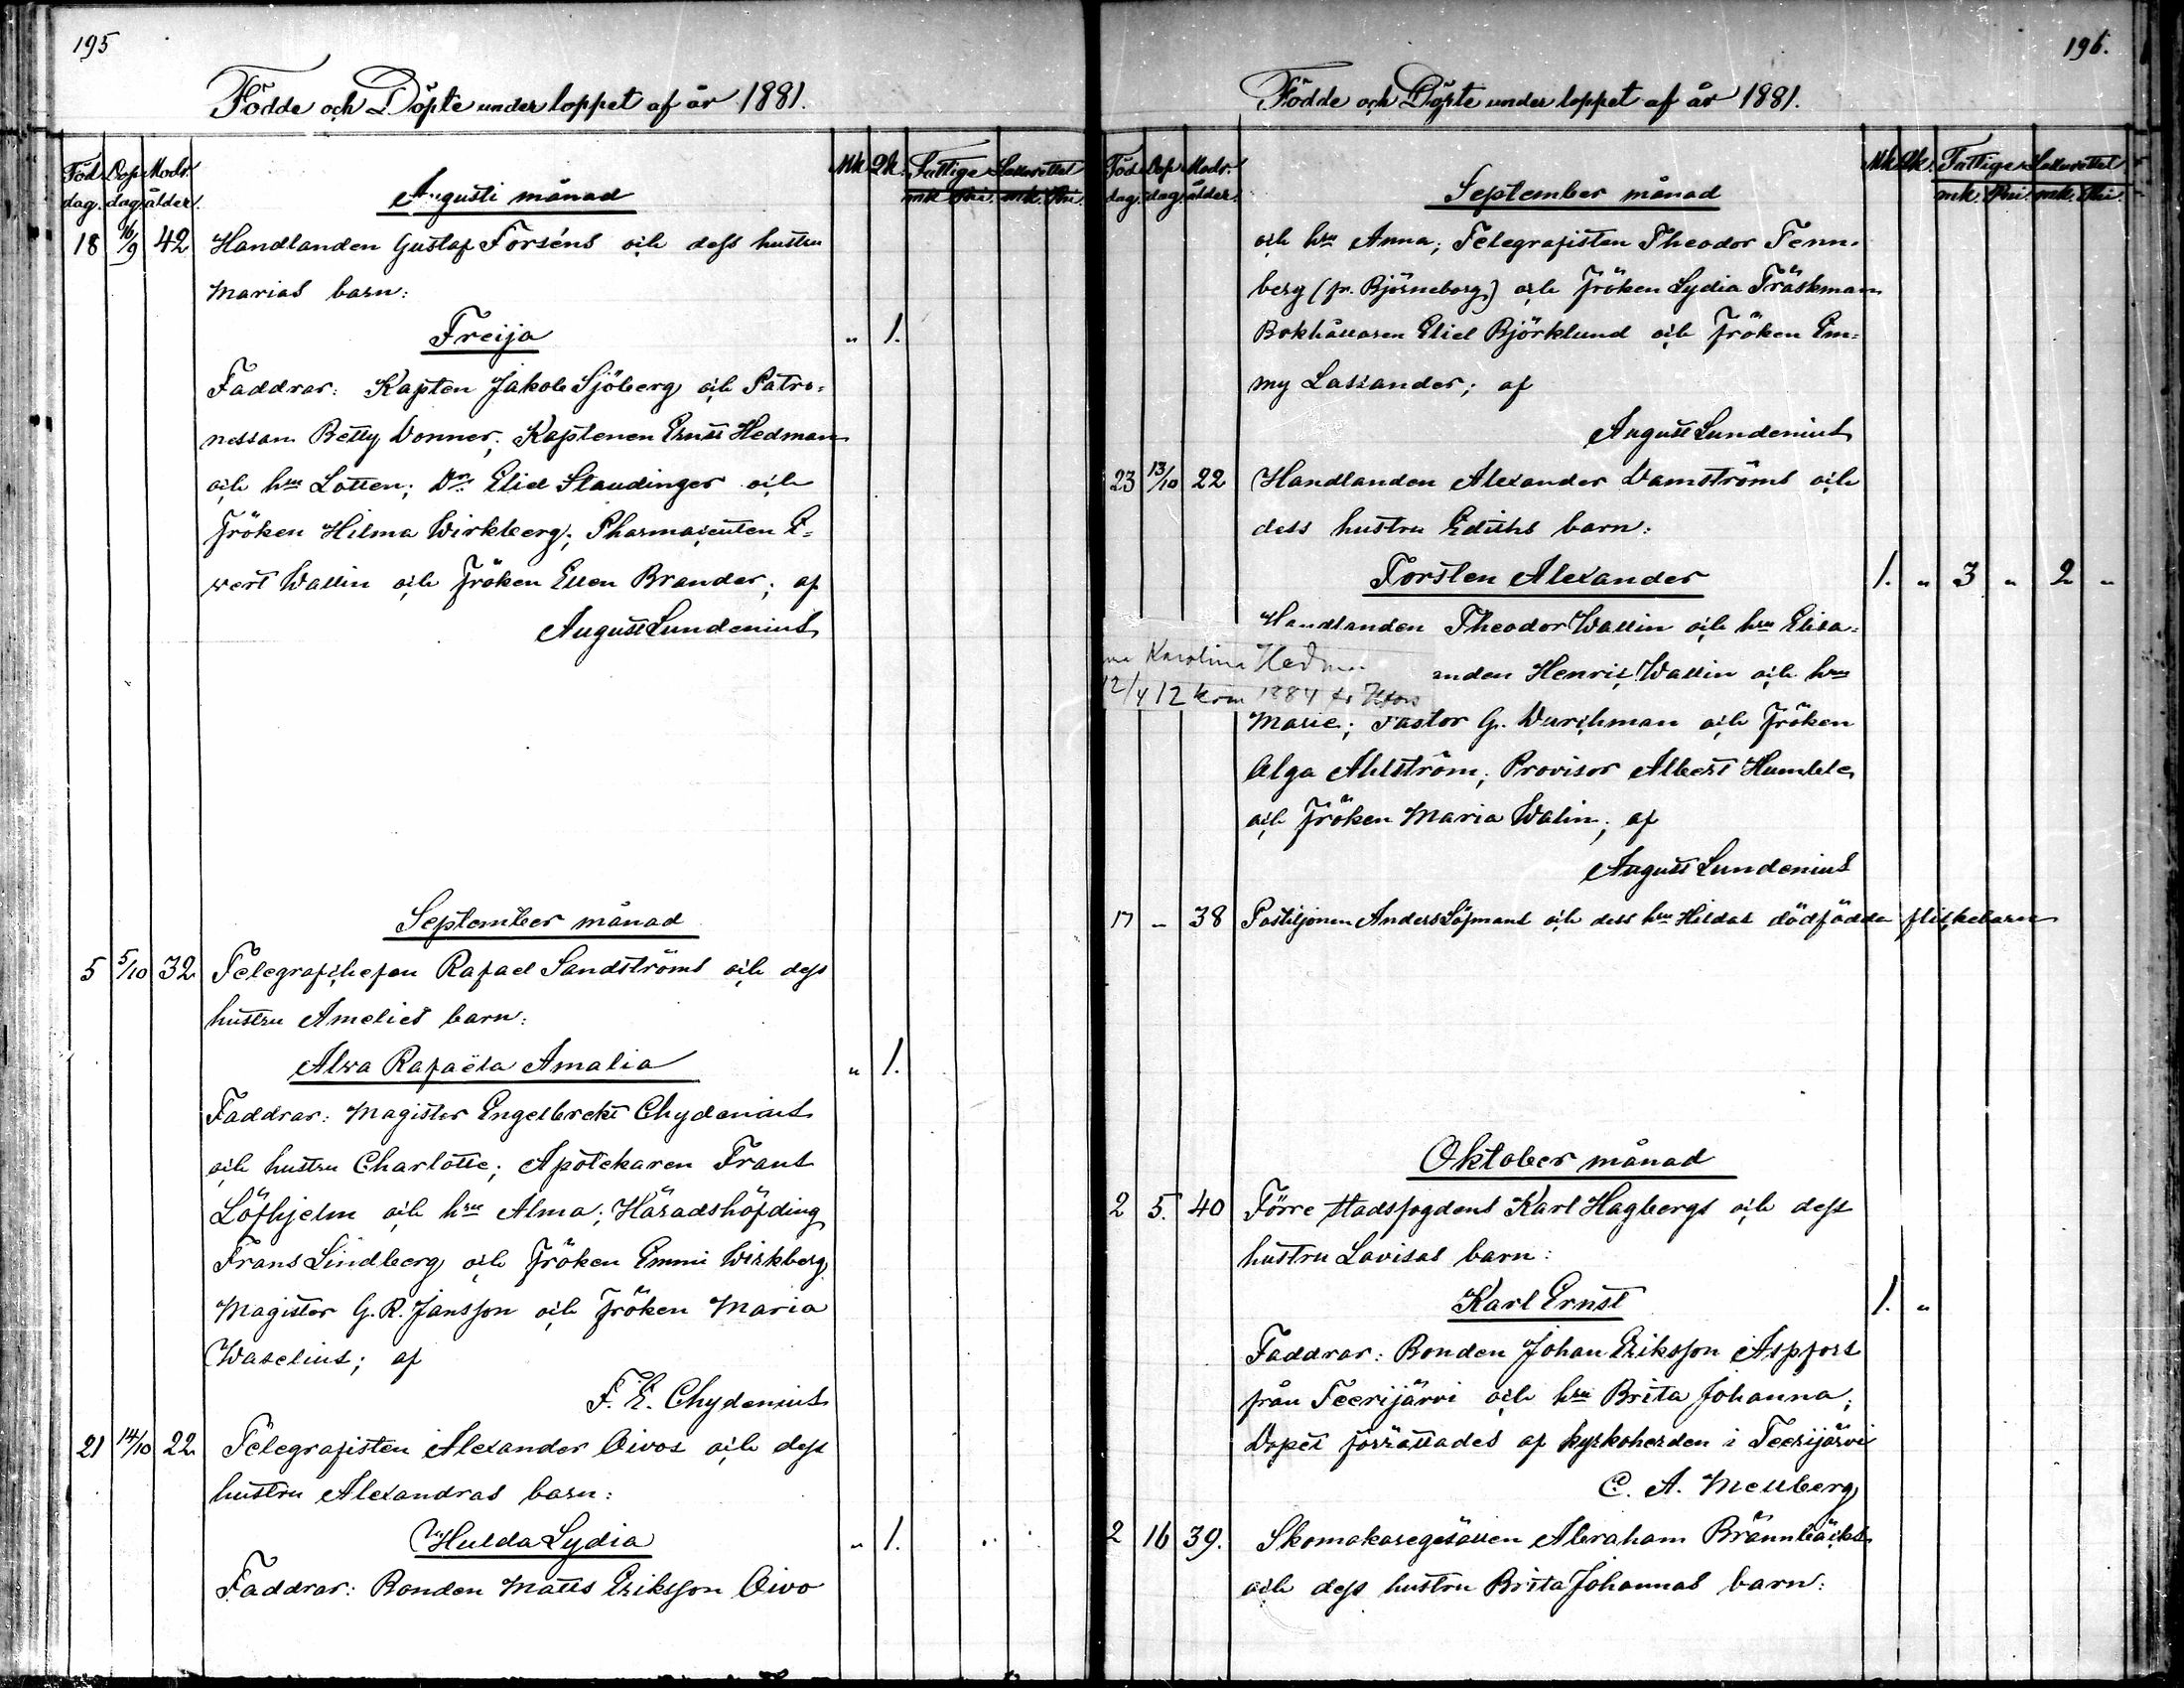 195
Födde och Döpte under loppet af år 1881.
Föd. dag. Dop dag. Modr. ålder. Mk. Qk. Fattige mk. Pni. Lasarettet mk. Pni.
Augusti månad
18 16/9 42 Handlanden Gustaf Forséns och dess hustru
Marias barn:
Freija " 1.
Faddrar: Kapten Jakob Sjöberg och Patro=
nessan Betty Donner; Kaptenen Ernst Hedman
och hru Lotten; Dr. Elid Staudinger och
Fröken Hilma Wirkberg; Pharmaceuten E=
vert Wallin och Fröken Ellen Brander; af
August Lundenius
September månad
5 5/10 32 Telegrafchefen Rafael Sandströms och dess
hustru Amelies barn:
Alva Rafaëla Amalia " 1.
Faddrar: Magister Engelbrekt Chydenius
och hustru Charlotte; Apotekaren Frans
Löfhjelm och hru Alma; Häradshöfding
Frans Lindberg och Fröken Emmi Wirkberg
Magister G. R. Jansson och Fröken Maria
Waselius; af
F. E. Chydenius
21 14/10 22 Telegrafisten Alexander Oivos och dess
hustru Alexandras barn:
Hulda Lydia " 1.
Faddrar: Bonden Matts Eriksson Oivo
196.
Födde och Döpte under loppet af år 1881.
Föd. dag. Dop dag. Modr. ålder. Mk. Qk. Fattige mk. Pni. Lasarettet mk. Pni.
September månad
och hru Anna; Telegrafisten Theodor Tenn=
berg (fr. Björneborg) och Fröken Lydia Träskman
Bokhållaren Eliel Björklund och Fröken Em=
my Lassander; af
August Lundenius
23 13/10 22 Handlanden Alexander Damströms och
dess hustru Ediths barn:
Torsten Alexander 1. " 3 " 2 "
Handlanden Theodor Wallin och hru Elisa=
Karolina Hedm
anden Henric Wallin och hru
12/4 12 krm 1884
Marie; Pastor G. Wurchman och Fröken
Olga Ahlström; Provisor Albert Humble
och Fröken Maria Walin; af
August Lundenius
17 - 38 Postiljonen Anders Löfmans och dess hru Hildas dödfödda flickebarn
Oktober månad
2 5. 40 Förre stadsfogdens Karl Hagbergs och dess
hustru Lovisas barn:
Karl Ernst 1. "
Faddrar: Bonden Johan Eriksson Aspfors
från Teerijärvi och hru Brita Johanna;
Dopet förrättades af kyrkoherden i Teerijärvi
C. A. Mellberg
2 16 39. Skomakaregesällen Abraham Brännbäcks
och dess hustru Brita Johannas barn: